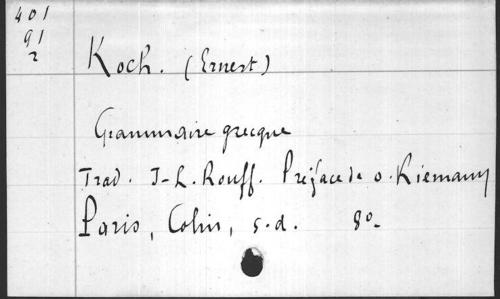 401
91
2
Koch. (Ernest)
Grammaire grecque
Trad. J-L. Rouff. Préface de O. Riemann
Paris, Colin, s.d. 8º-